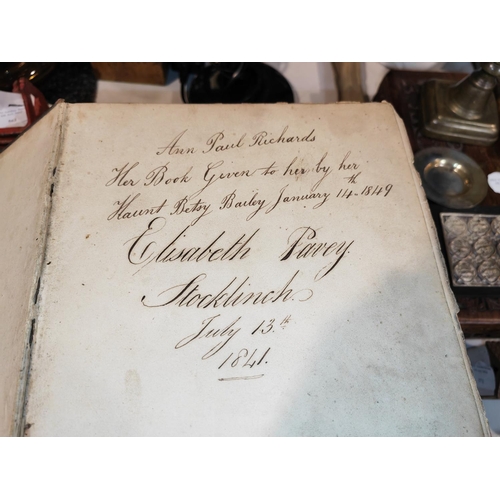 Ann Paul Richards
Her Book Given to her by her
Haunt Betsy Bailey January 14th 1849
Elisabeth Pavey.
Stocklinch.
July 13.th
1841.